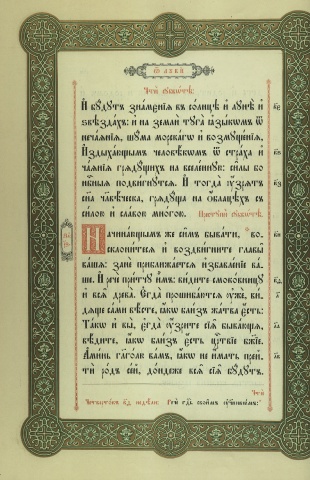 Ѿ ЛУКИ
Чти́ сꙋббѡ́тѣ:
И҆ бꙋ́дꙋтъ зна́мєнїѧ въ со́лнцѣ и҆ лꙋнѣ̀ и҆
ѕвѣзда́хъ: и҆ на землѝ тꙋга̀ ꙗ҆зы́кѡмъ ѿ
неча́ѧнїѧ, шꙋ́ма морска́гѡ и҆ возмꙋще́нїѧ,
И҆здыха́ющымъ человѣ́кѡмъ ѿ стра́ха и҆
ча́ѧнїѧ грѧдꙋ́щихъ на вселе́ннꙋю: си̑лы бо
нбⷭ҇ныѧ подви́гнꙋтсѧ. И҆ тогда̀ ᲂу҆́зрѧтъ
сн҃а чл҃вѣ́ческа, грѧдꙋ́ща на ѡ҆́блацѣхъ съ
си́лою и҆ сла́вою мно́гою.
Начина́ющымъ же си̑мъ быва́ти, во-
склони́тесѧ и҆ воздви́гните главы̑
ва́шѧ: занѐ приближа́етсѧ и҆збавле́нїе ва́-
ше. И҆ речѐ при́тчꙋ и҆̀мъ: ви́дите смоко́вницꙋ
и҆ всѧ̑ древа̀. Е҆гда̀ прошиба́ютсѧ ᲂу҆жѐ, ви́-
дѧще са́ми вѣ́сте, ꙗ҆́кѡ бли́з̾ жа́тва є҆́сть:
Та́кѡ и҆ вы̀, є҆гда̀ ᲂу҆́зрите сїѧ̑ быва̑юща,
вѣ́дите, ꙗ҆́кѡ бли́з̾ є҆́сть црⷭ҇твїе бж҃їе.
А҆ми́нь гл҃го́лю ва́мъ, ꙗ҆́кѡ не и҆́мать прей-
тѝ ро́дъ се́й, до́ндеже всѧ̑ сїѧ̑ бꙋ́дꙋтъ.